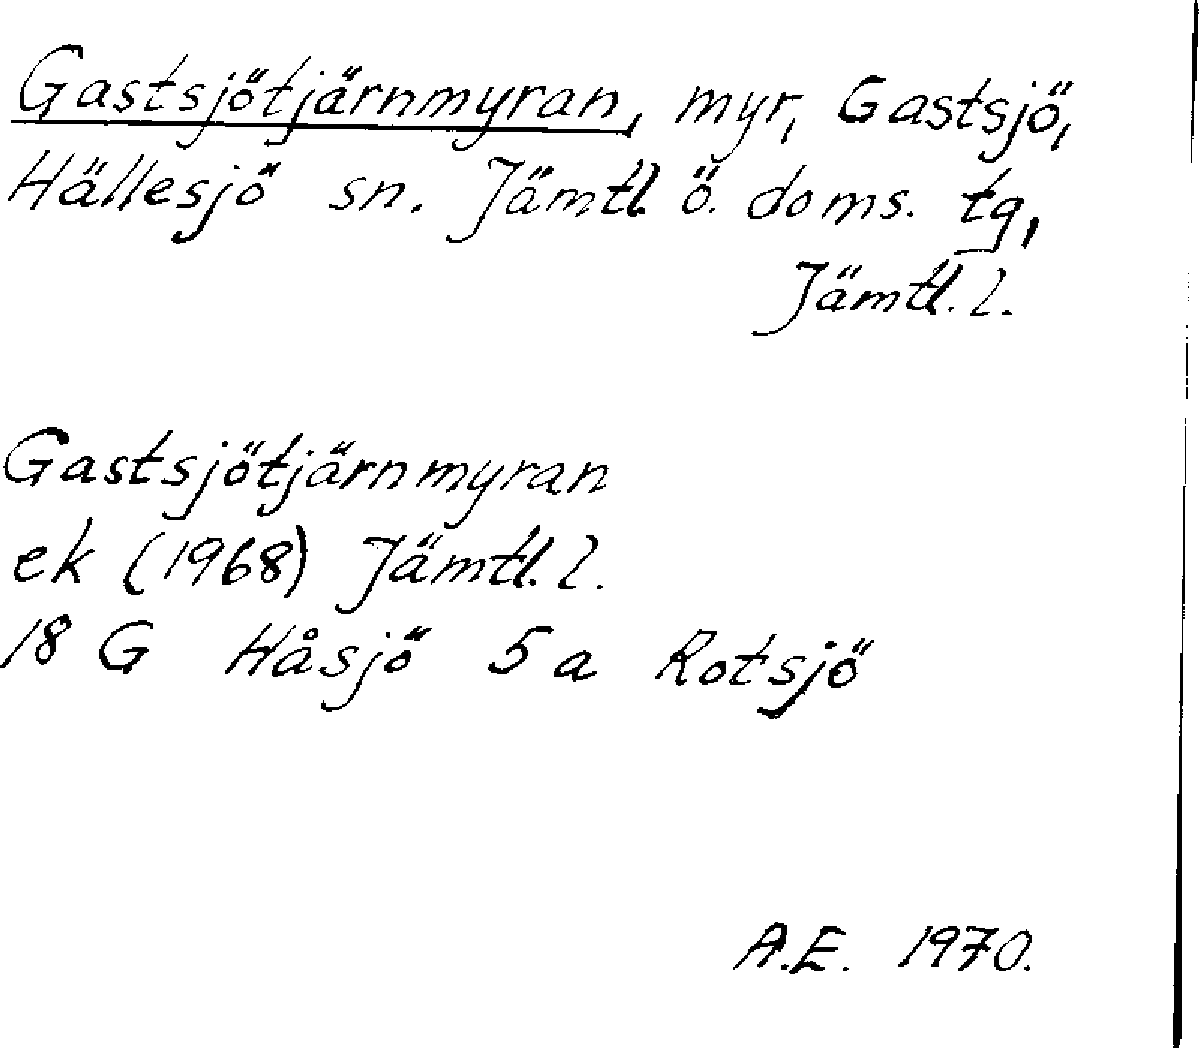 Gastsjötjärnmyran, myr, Gastsjö,
Hällesjö sn. Jämtl. ö. doms. tg,
Jämtl. l.
Gastsjötjärnmyran
ek (1968) Jämtl. l.
18 G Håsjö 5 a Rotsjö
A.E. 1970.